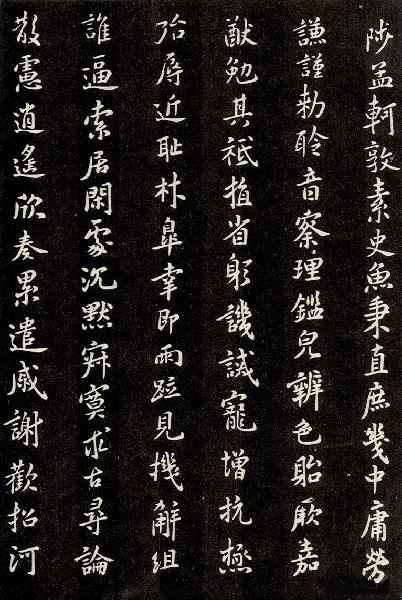 陟孟軻敦素史魚秉直庶幾中庸勞
謙謹勅聆音察理鑑皃辨色貽厥嘉
猷勉其祗植省躬譏誡寵增抗極
殆辱近耻林皋幸即兩疏見機解組
誰逼索居閑處沉默寂寞求古尋論
散慮逍遙欣奏累遣慼謝歡招河